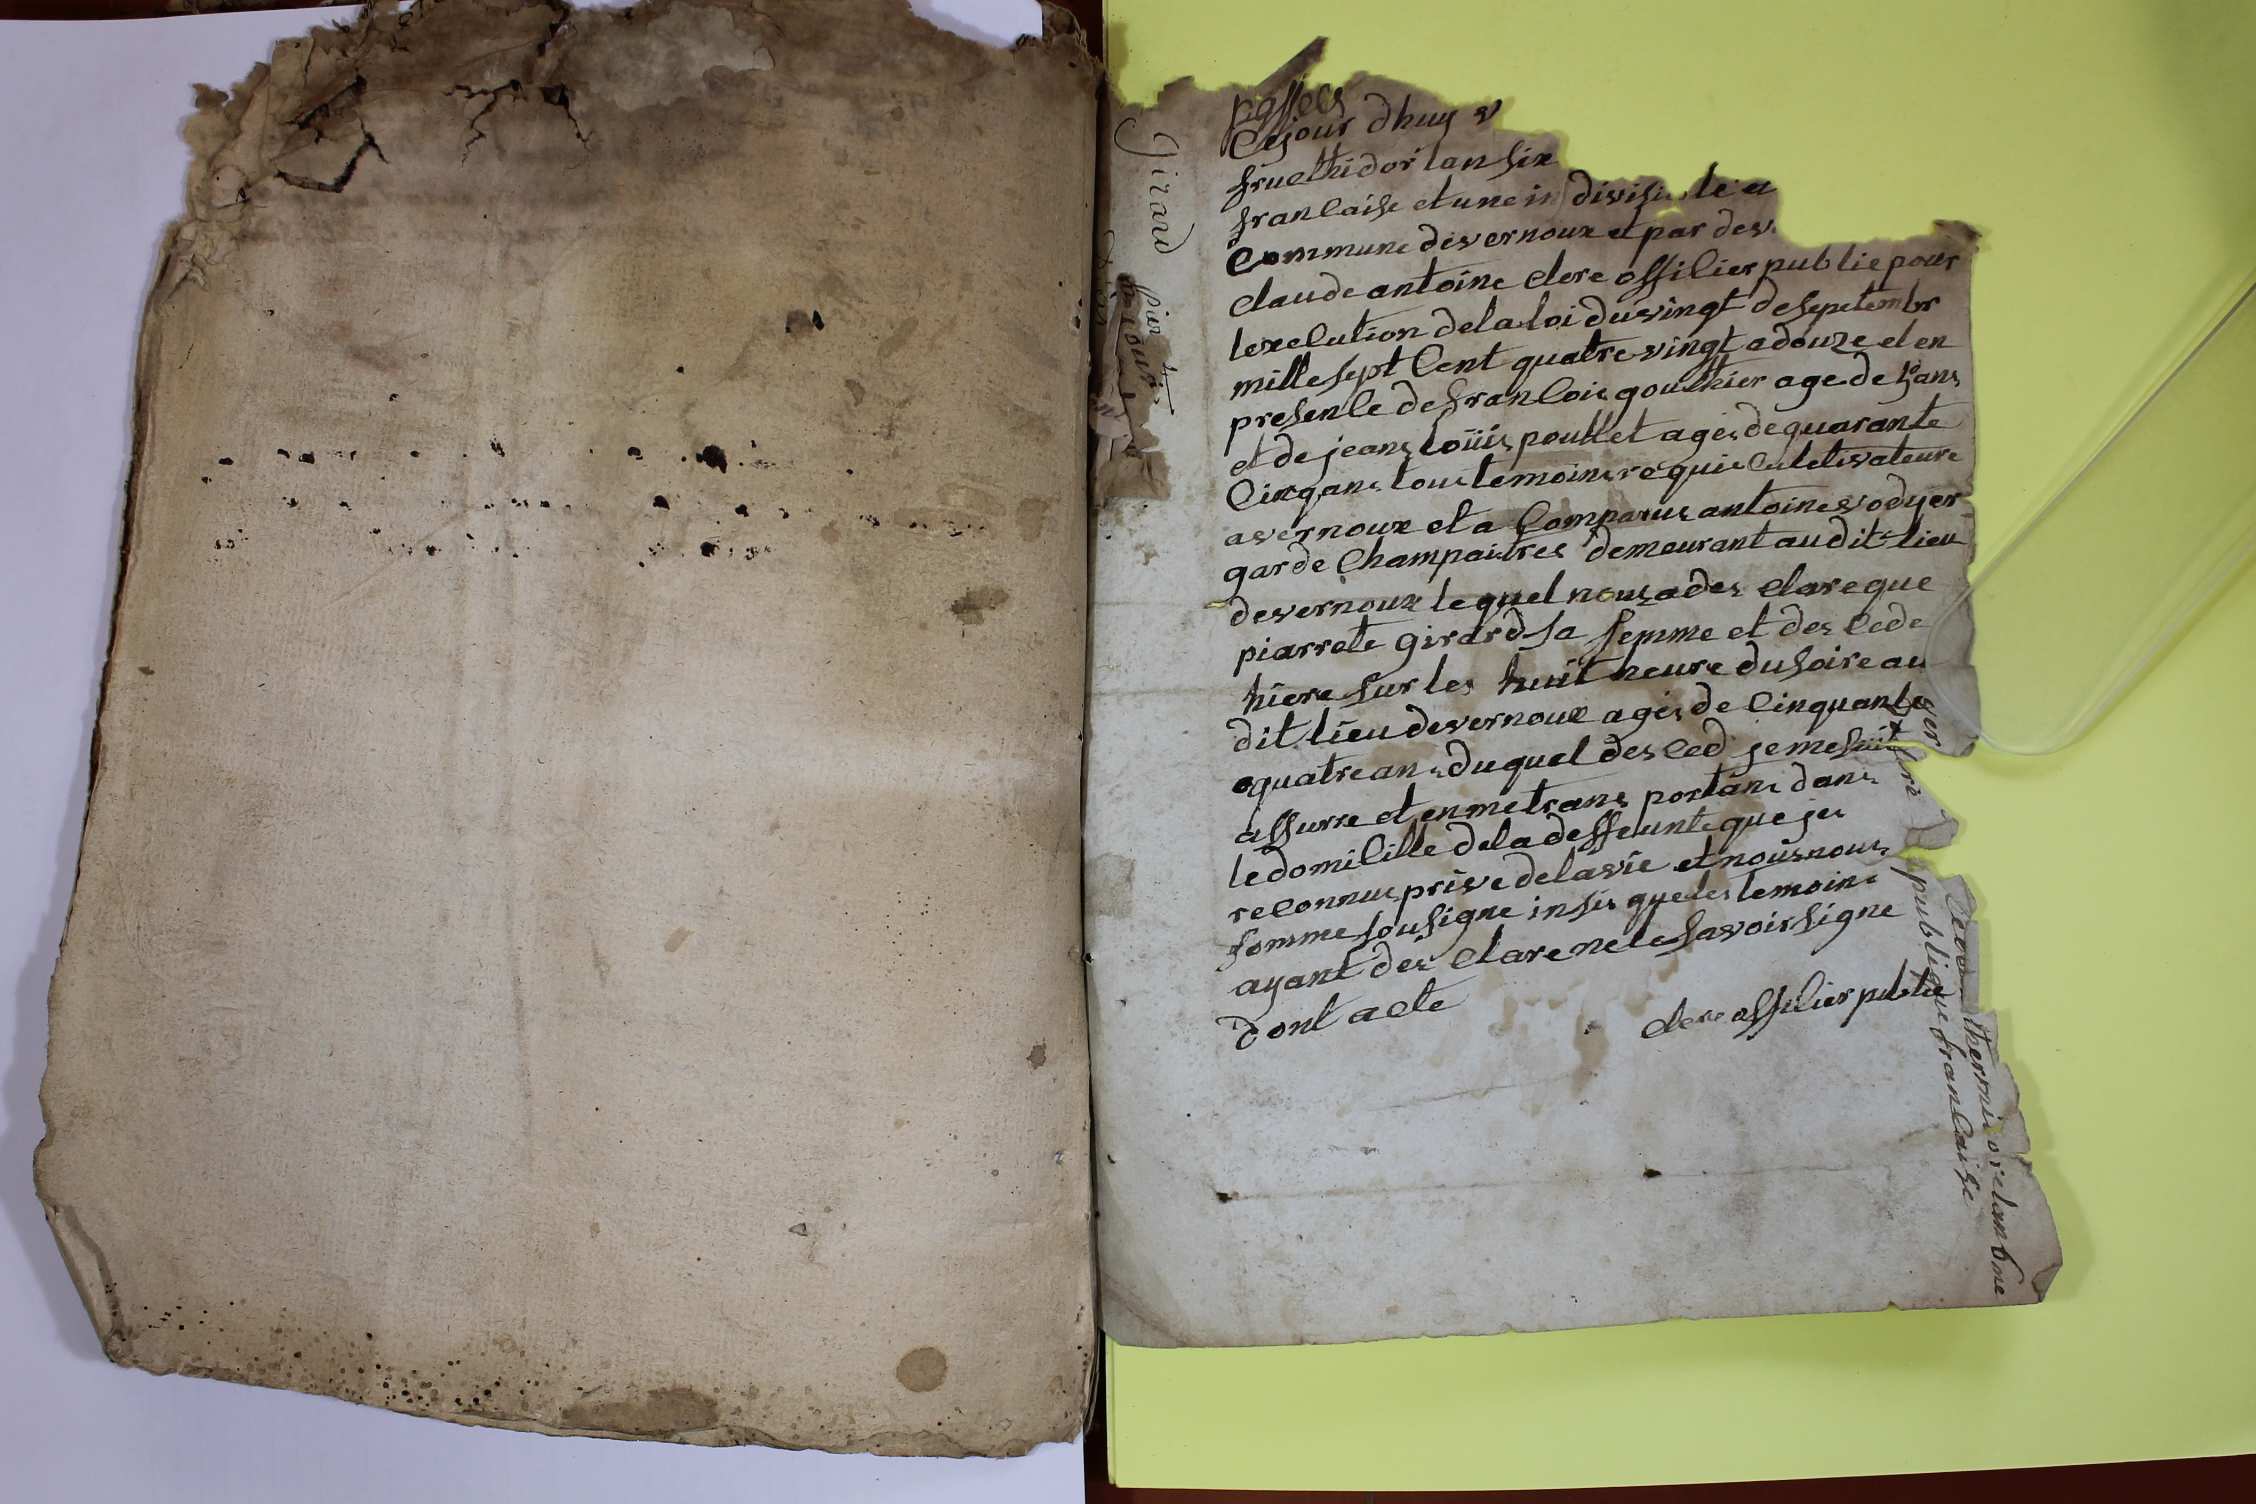 Girard
passees
Cejour dhuy v
fruethidor lan six
francaise et une indivisible et
Commune devernoux et par dev
claude antoine clere officier public pour
lexecution de la loi du vingt de septembr
mille sept Cent quatre vingt a douze et en
presence de francois gouthier age de ans
et de jeans loüis pouttet ages de quarante
Cinqans tous temoins requis Culetivateurs
avernoux et a Comparus antoines vodyer
garde Champaitres demeurant audit lieu
devernoux lequel nous a des clare que
piarrete girard sa femme et des cede
hiere sur les huit heure du soire au
dit lieu devernoux ages de Cinquante
quatre ans duquel des ced je me suit
assurre et en me trans portans dans
le domicille de la deffeunte que jes
reconnus prive de la vie et nous nous
somme sousigne insis que les temoins
ayant des clare ne le savoir signe
dont acte
clere officier public
publique francaise
thermidor lan